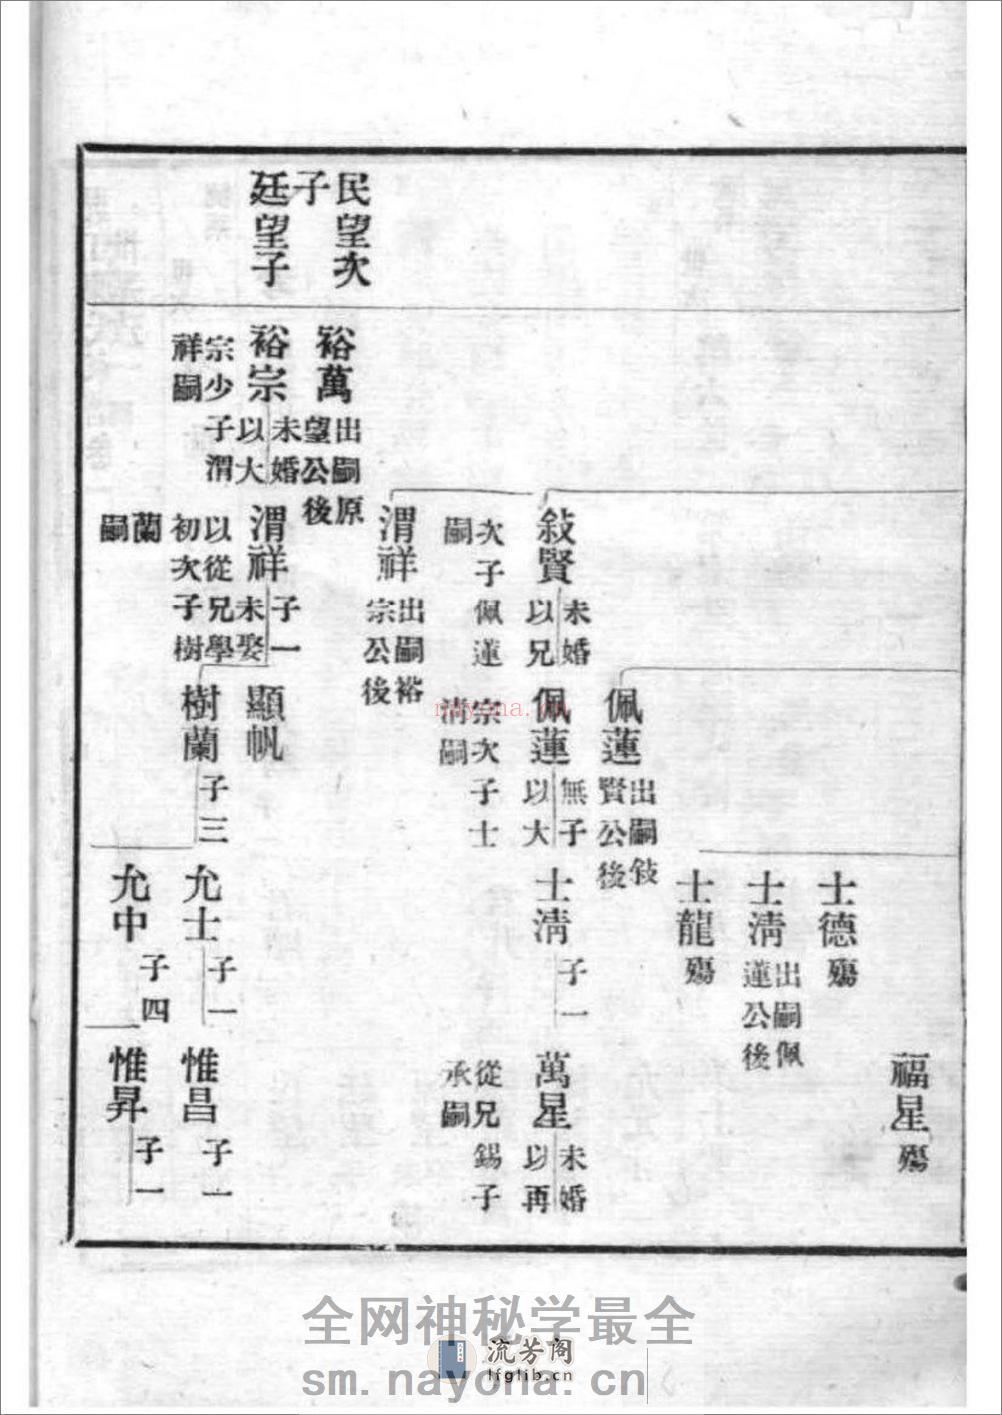 民望次
子
廷望子
裕萬
出嗣原
望公後
裕宗
未婚
以大
宗少子渭
祥嗣
敍賢
未婚
以兄
次子佩蓮
嗣
渭祥
出嗣裕
宗公後
渭祥
子一
未娶
以從兄學
初次子樹
蘭
嗣
佩蓮
出嗣敍
賢公後
佩蓮
無子
以大
宗次子士
清嗣
顯帆
樹蘭
子三
士德
殤
士清
出嗣佩
蓮公後
士龍
殤
士清
子一
允士
子一
允中
子四
福星
殤
萬星
未婚
以再
從兄錫子
承嗣
惟昌
子一
惟昇
子一
nayona.cn
全网神秘学最全
流芳阁
lfglib.cn
sm.nayona.cn